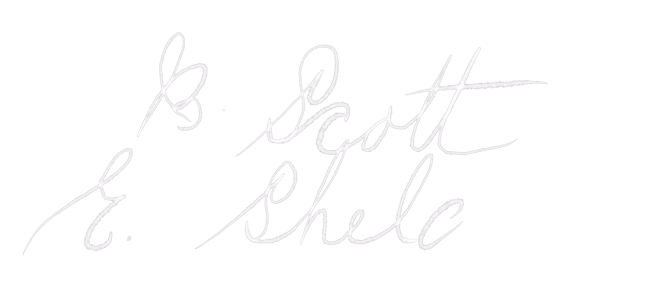 B. Scott
E. Shelc